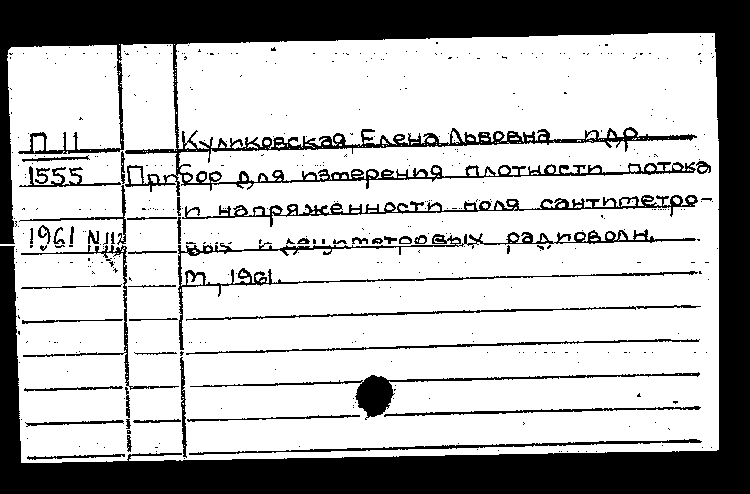 П 11 Куликовская, Елена Львовна и др.
1555 Прибор для измерения плотности потока
и напряженности поля сантиметро-
1961 вых и дециметровых радиоволн.
М., 1961.